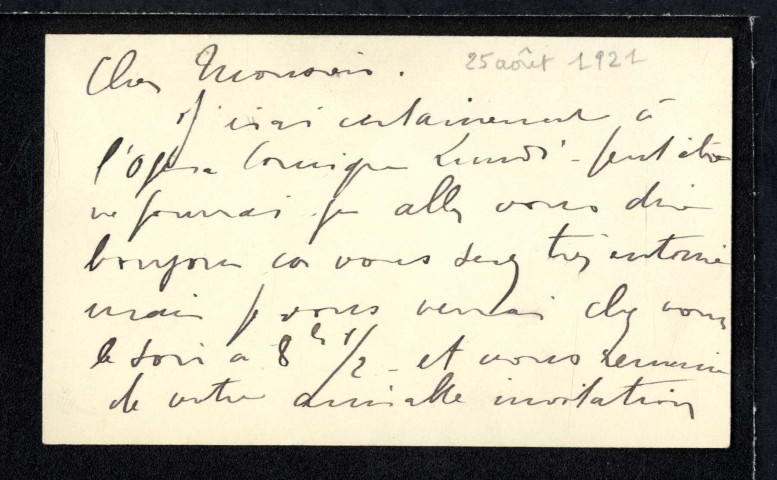 Cher Monsieur. 25 août 1921
J'irai certainement à
l'Opéra Comique Lundi - peut être
ne pourrai je aller vous dire
bonjour car vous serez très entouré
mais je vous verrai chez vous
le soir à 8h 1/2 - et vous remercie
de votre aimable invitation